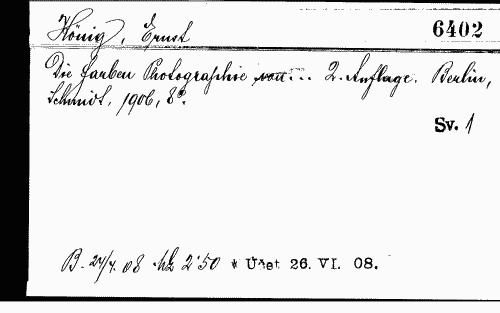 König, Ernst 6402
Die Farben Photographie von... 2. Auflage. Berlin,
Schmidt, 1906, 8°.
Sv. 1
B. 24/4. 08 Mk 2·50 * Účet 26. VI. 08.